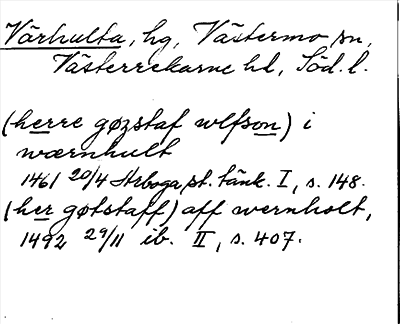 Värhulta, hg, Västermo sn,
Västerrekarne hd, Söd. l.
(herre gøzstaf wlfson) i
wærnhult
1461 20/4 Arboga st. tänk. I, s. 148.
(her gøtstaff) aff wernholt,
1492 29/11 ib. II, s. 407.